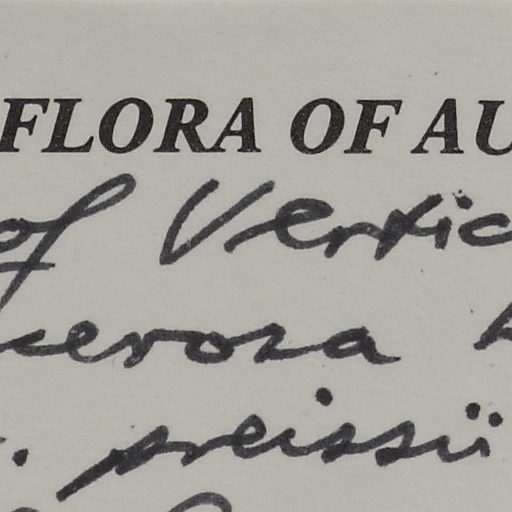 FLORA OF AU
of Vertic
cerosa
. preissii